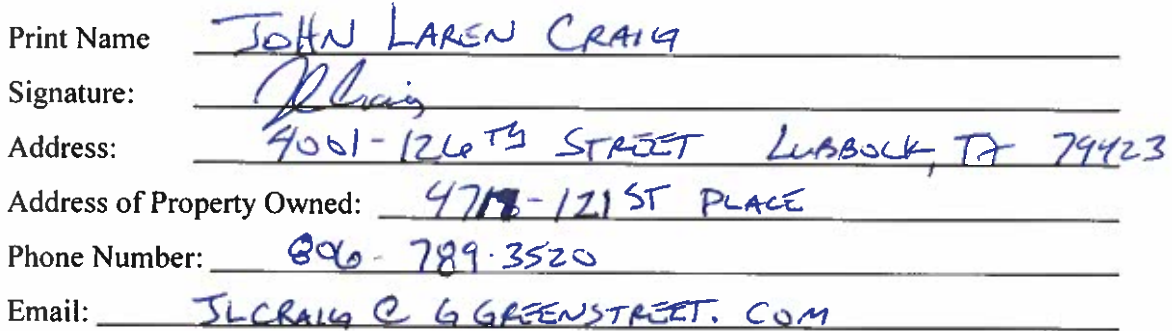 Print Name JOHN LAREN CRAIG
Signature: JLCraig
Address: 4001-126TH STREET LUBBOCK, TX 79423
Address of Property Owned: -121ST PLACE
Phone Number: 806-789.3520
Email: JLCRAIG @ GGREENSTREET.COM